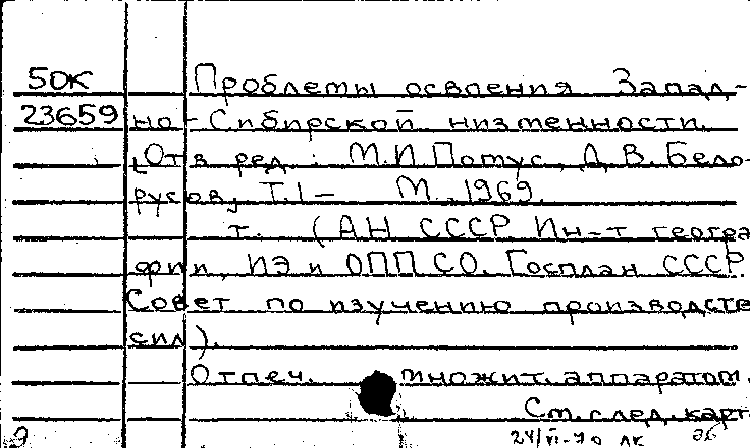 50К Проблемы освоения Запад-
23659 но-Сибирской низменности.
[Отв. ред.: М.И. Помус, Д.В. Бело-
русов], Т.1- М., 1969.
т. (АН СССР. Ин-т геогра
фии, ИЭ и ОПП СО. Госплан СССР.
Совет по изучению производств
сил).
Отпеч. множит. аппаратом.
См. след. карт
24/VI-70 ЛК